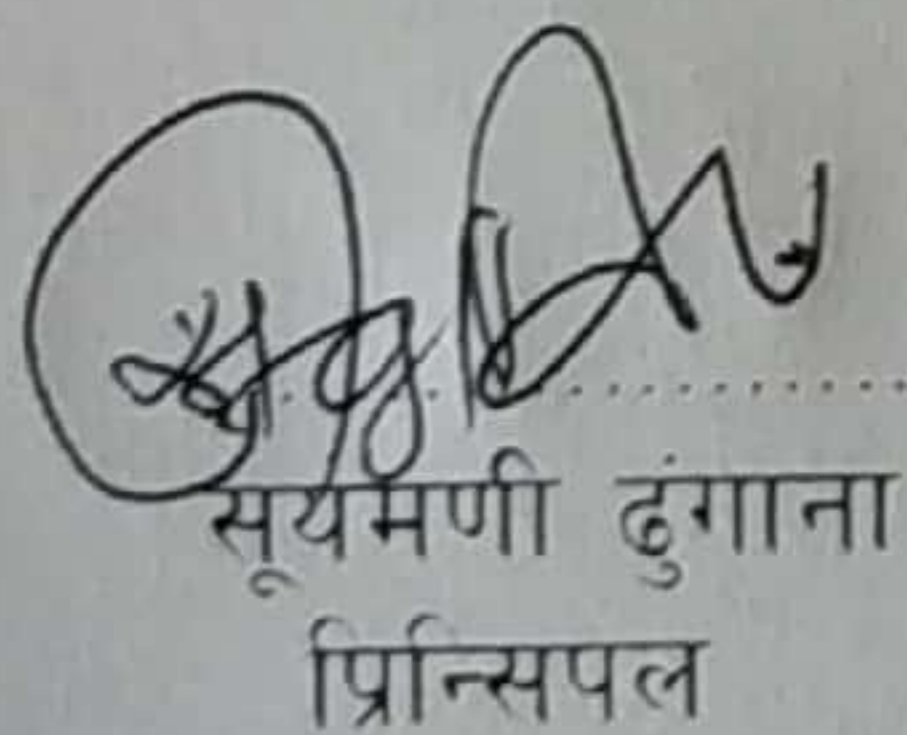 सूर्यमणी ढुंगाना
प्रिन्सिपल